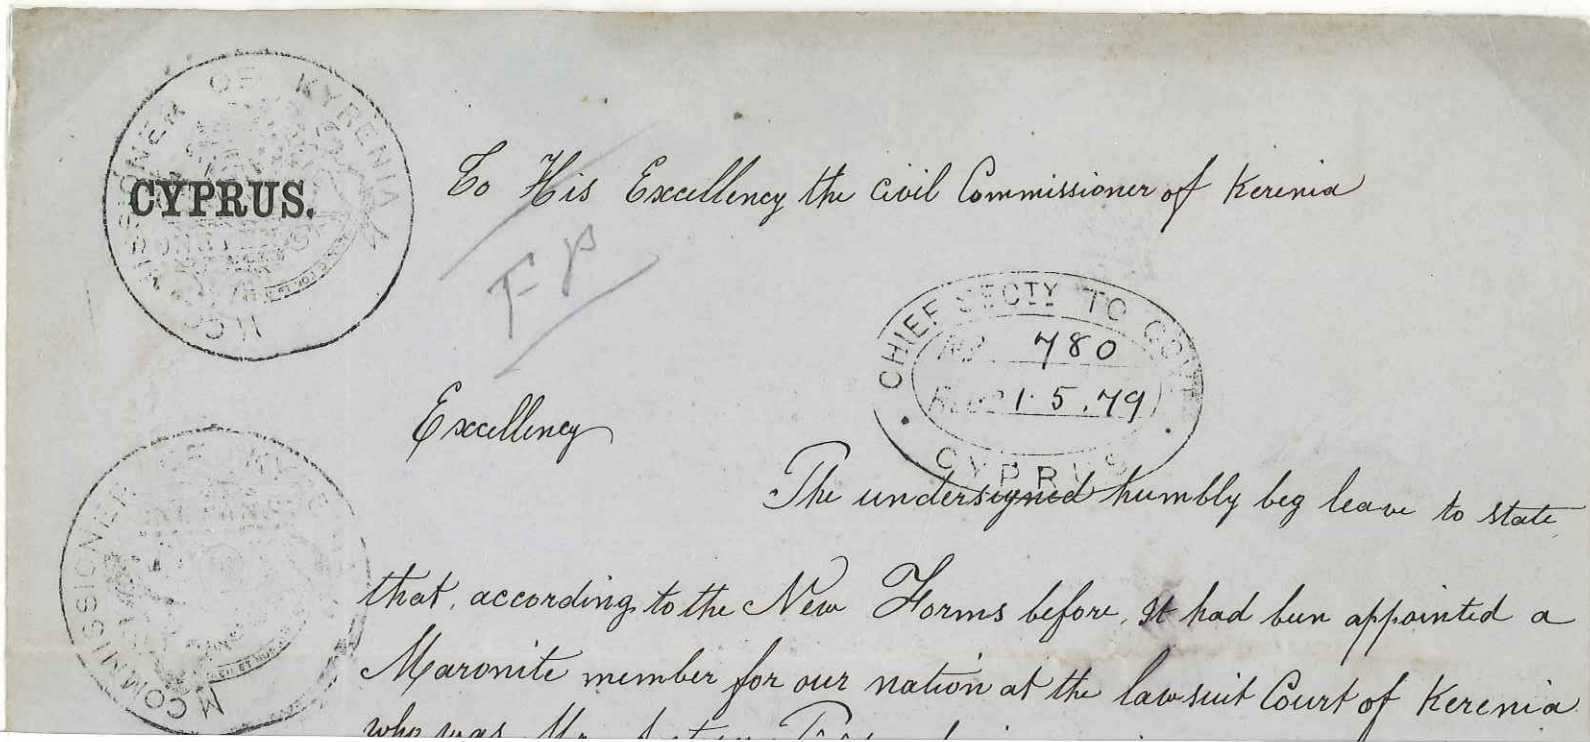 COMMISSIONER OF KYRENIA
CYPRUS.
To His Excellency the Civil Commissioner of Kerenia
FP
CHIEF SECTY TO GOVT
No. 780
Recd 1.5.79
CYPRUS
Excellency
The undersigned humbly beg leave to state
that, according to the New Forms before, It had been appointed a
COMMISSIONER OF KYRENIA
Maronite member for our nation at the lawsuit Court of Kerenia
who was Mr